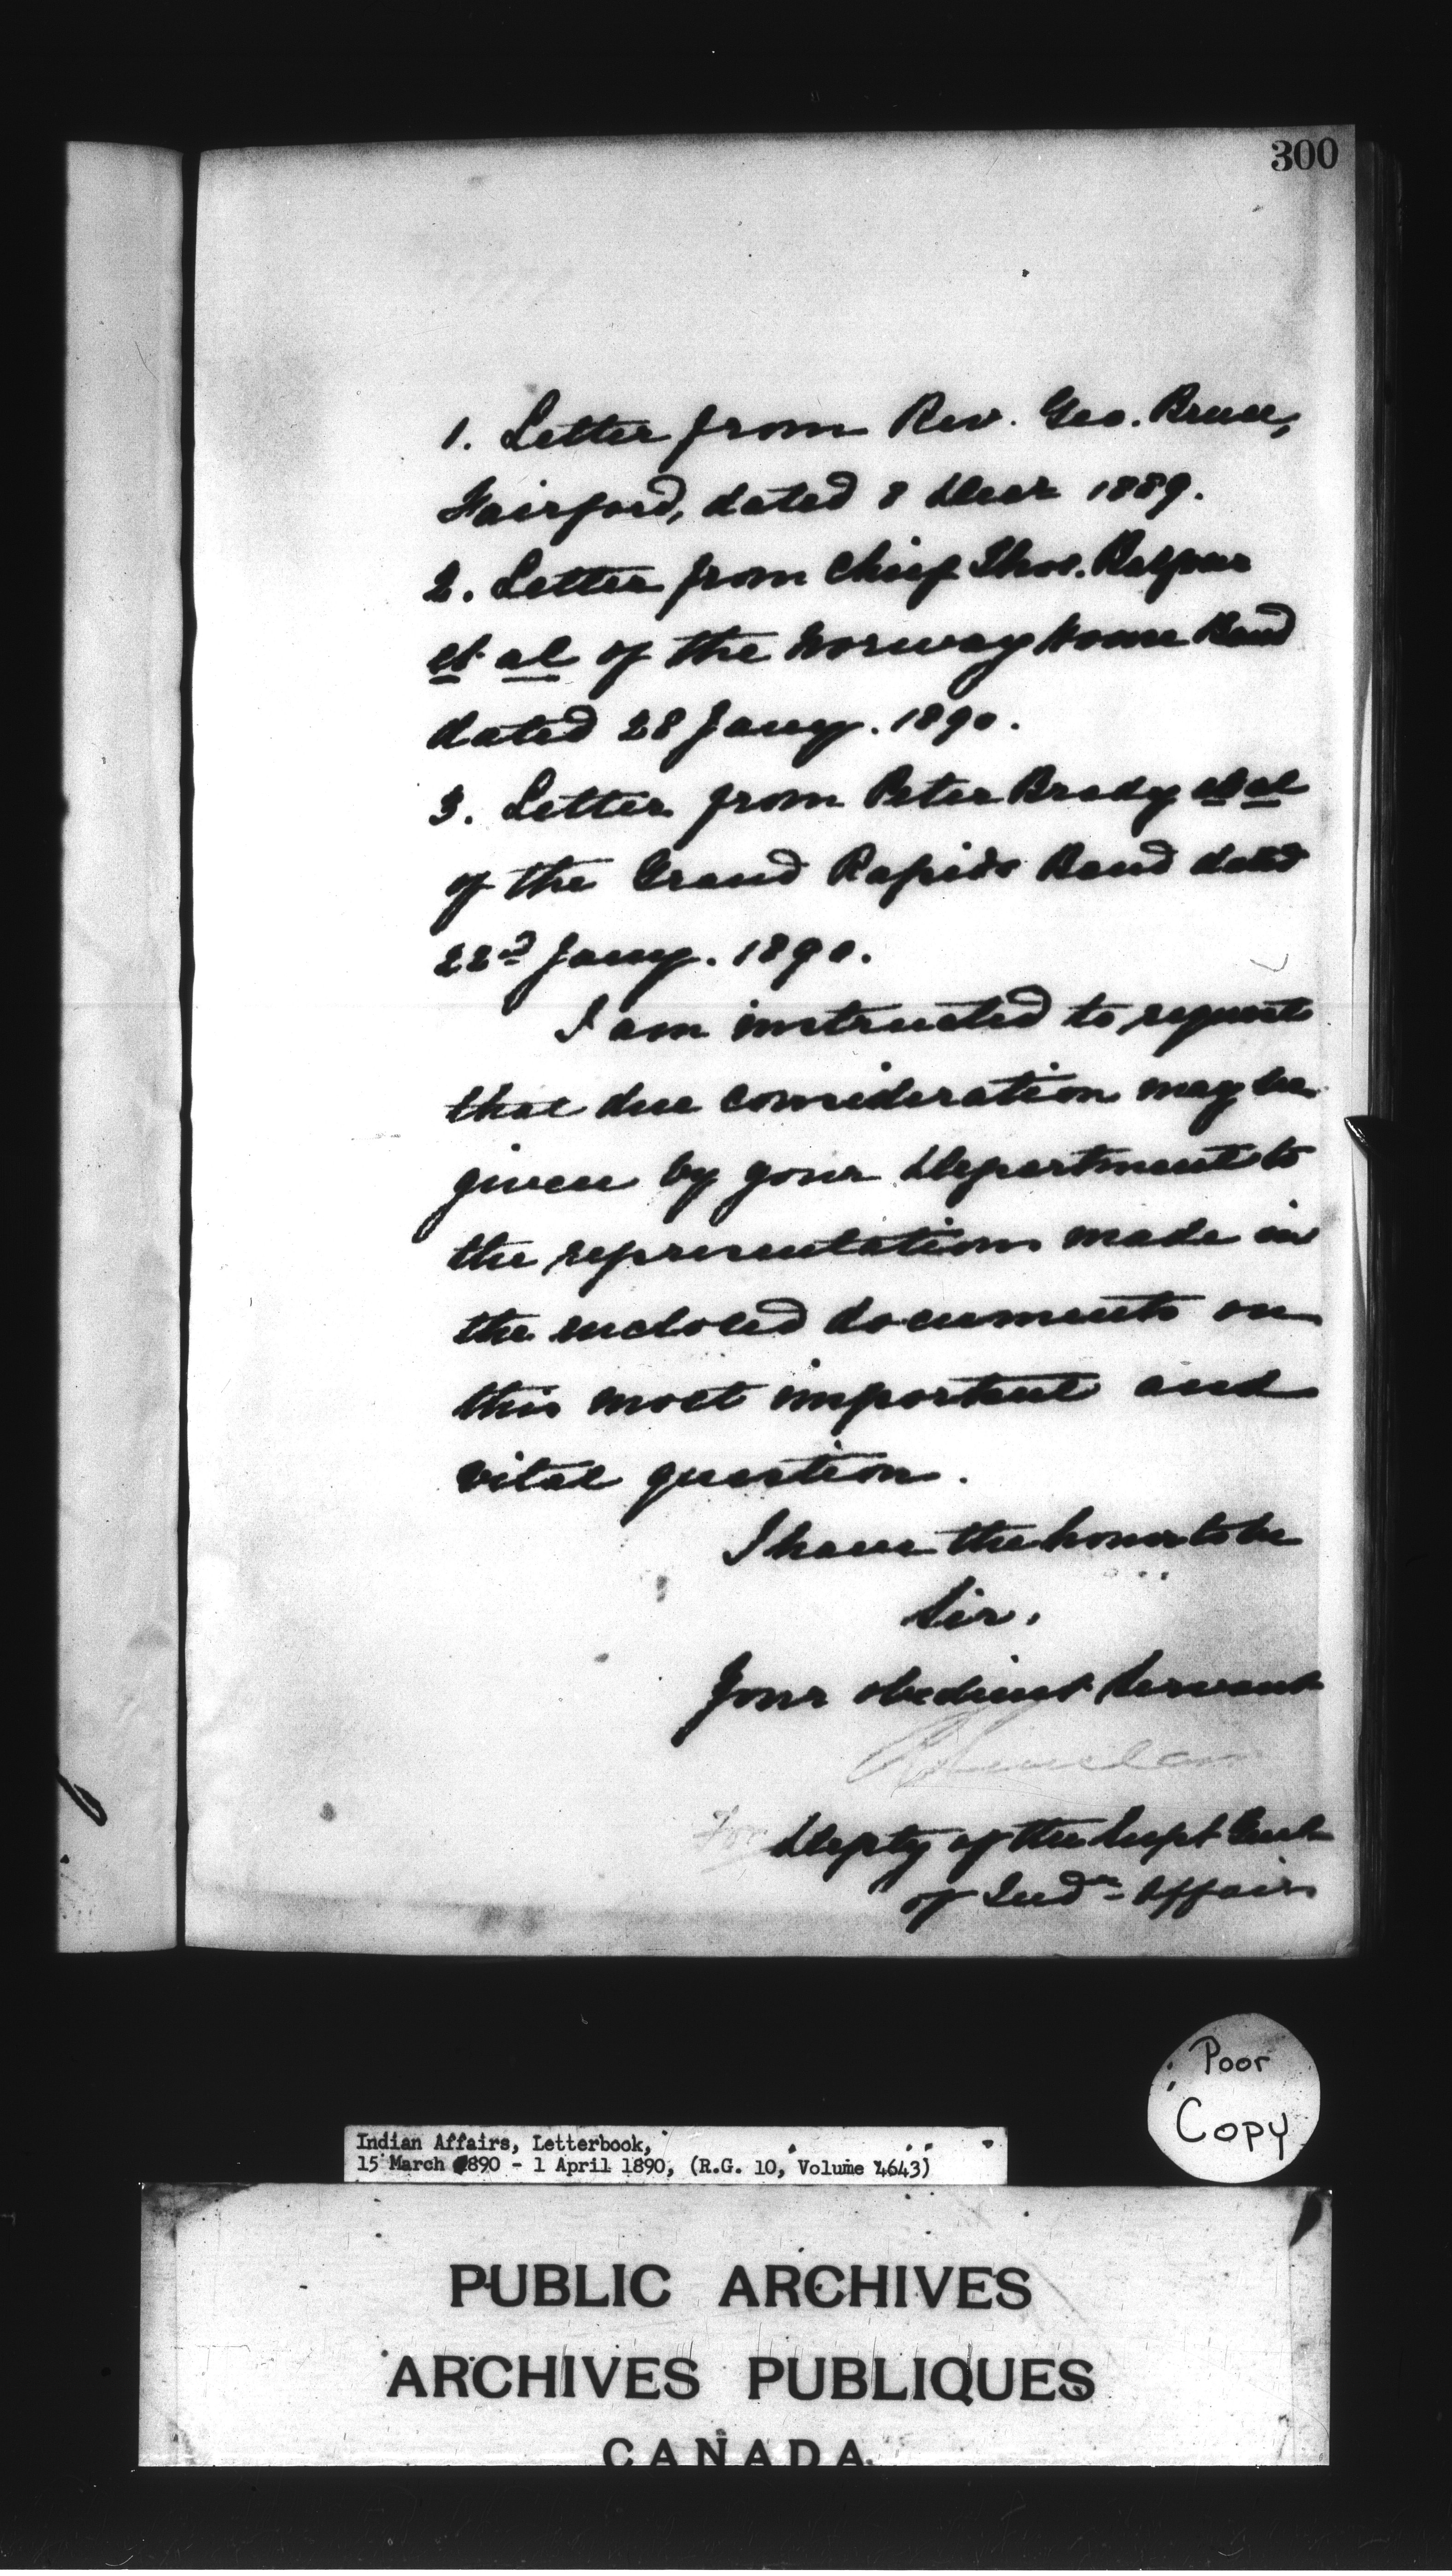 300
1. Letter from Rev. Geo. Bruce,
Fairford, dated 8 Decr 1889.
2. Letter from Chief Thos. Balfour
et al of the Norway House Band
dated 28 Jany. 1890.
3. Letter from Peter Brady et al
of the Grand Rapids Band dated
22nd Jany. 1890.
I am instructed to request
that due consideration may be
given by your Department to
the representations made in
the enclosed documents on
this most important and
vital question.
I have the honor to be
Sir,
Your obedient Servant
For Depty of the Supt Genl
of Indn Affairs
Poor
Copy
Indian Affairs, Letterbook,
15 March 1890 - 1 April 1890, (R.G. 10, Volume 4643)
PUBLIC ARCHIVES
ARCHIVES PUBLIQUES
CANADA